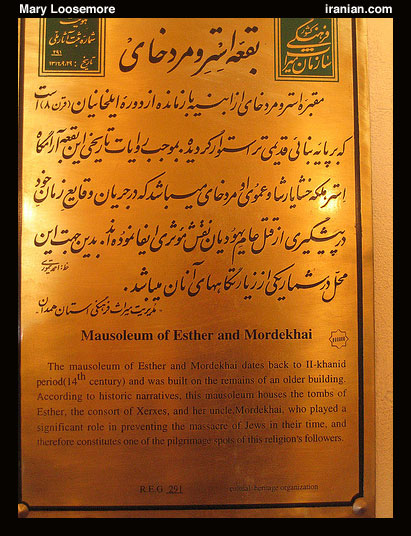 Mary Loosemore
iranian.com
هویت
شماره ثبت آثار ملی
۲۹۱
سازمان میراث فرهنگی کشور
بقعه استر و مردخای
مقبره استر و مردخای از ابنیه بازمانده از دوره ایلخانیان (قرن ۸) است
که بر پایه بنائی قدیمی تر استوار گردیده. بموجب روایات تاریخی این بقعه آرامگاه
استر ملکه خشایارشا و عموی او مردخای میباشد که در جریان وقایع زمان خود
در پیشگیری از قتل عام یهودیان نقش مؤثری ایفا نموده اند. بدین جهت این
محل در شمار یکی از زیارتگاههای آنان میباشد.
مدیریت میراث فرهنگی استان همدان
Mausoleum of Esther and Mordekhai
The mausoleum of Esther and Mordekhai dates back to Il-khanid
period(14th century) and was built on the remains of an older building.
According to historic narratives, this mausoleum houses the tombs of
Esther, the consort of Xerxes, and her uncle,Mordekhai, who played a
significant role in preventing the massacre of Jews in their time, and
therefore constitutes one of the pilgrimage spots of this religion's followers.
R.E.G 291
cultural heritage organization